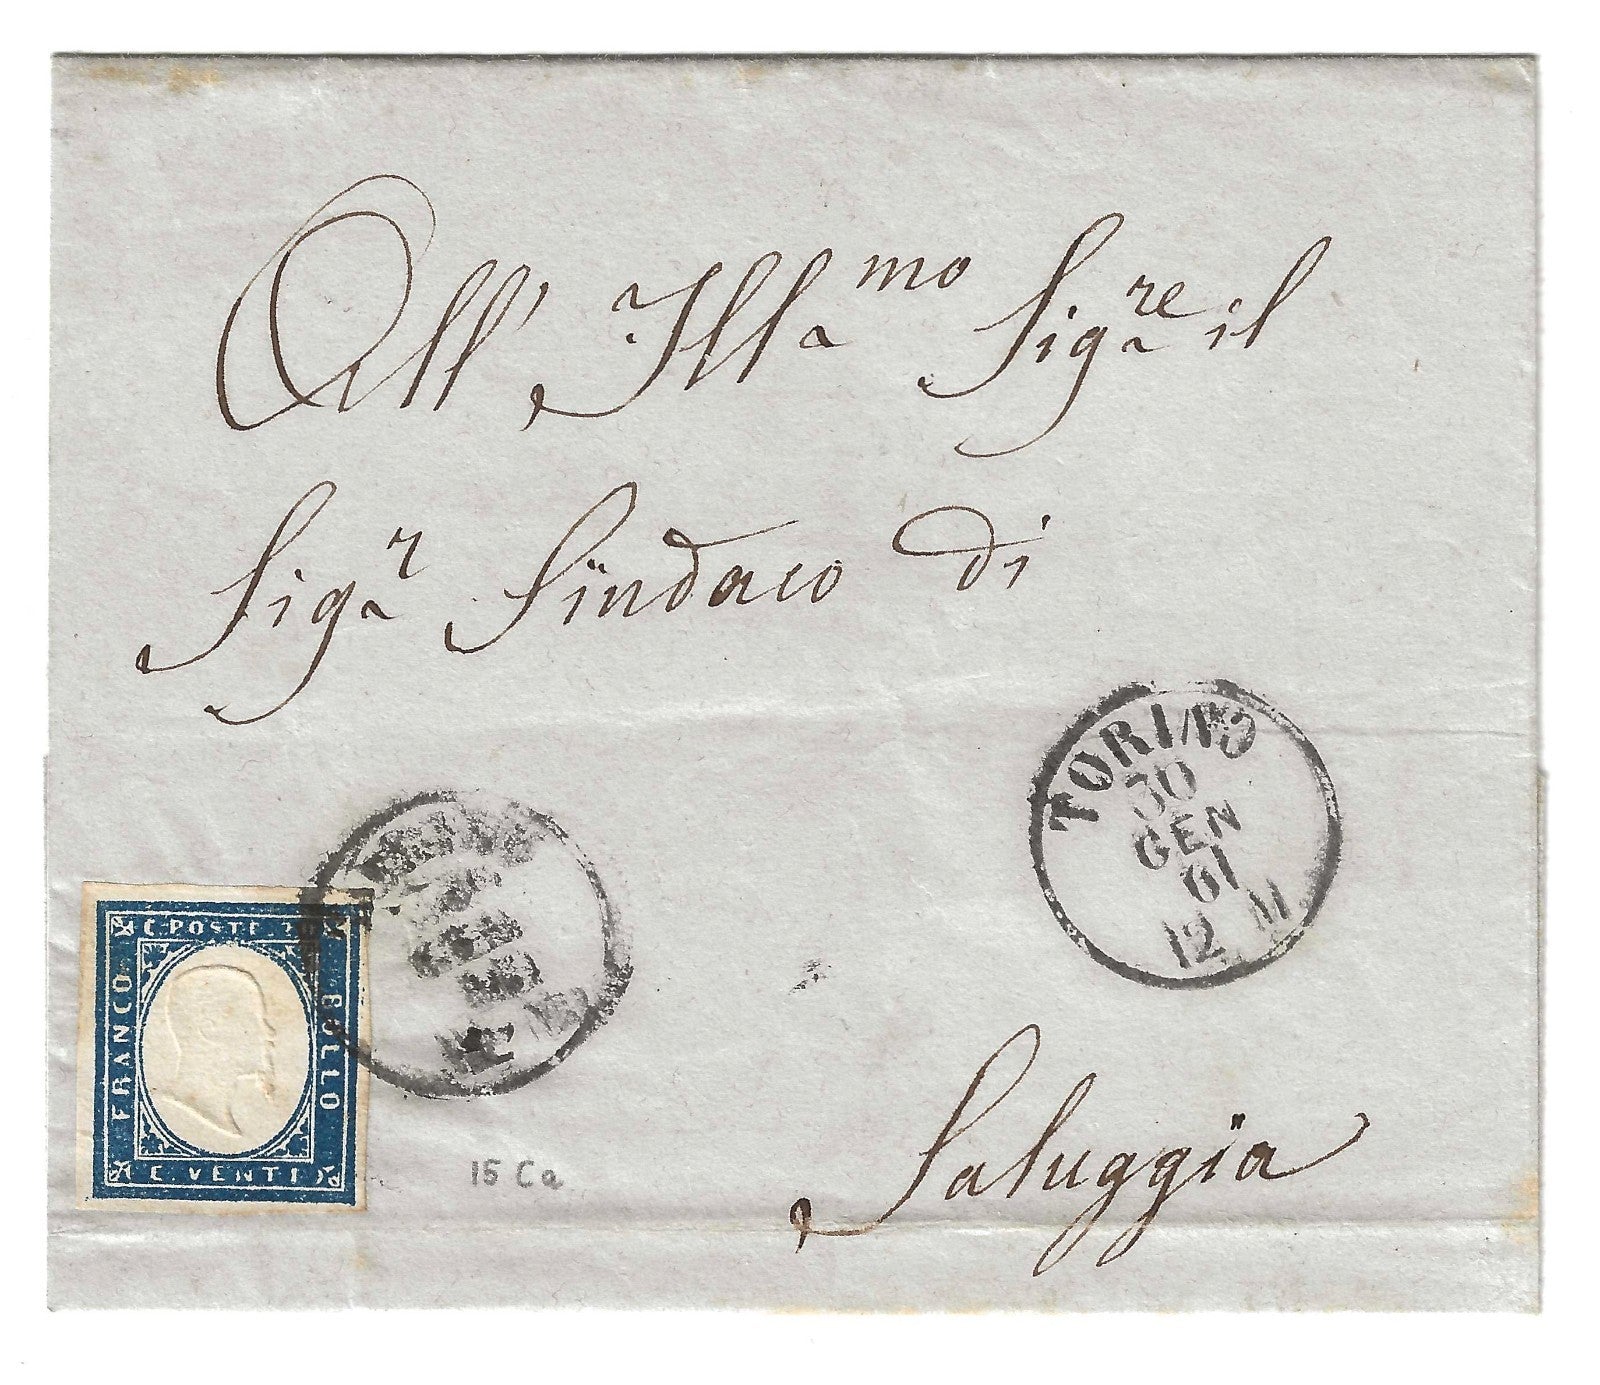 All' Ill.mo Sig.re il
Sig.r Sindaco di
TORINO
30
GEN
61
12 M
C. POSTE 20
FRANCO
BOLLO
C. VENTI
GEN
15 Ca
Saluggia